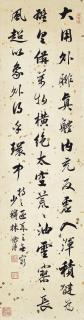 大用外腓真體內充反虛入渾積健為
雄具備萬物橫絕太空荒荒油雲寥寥長
風超以象外得其環中
少穆林則徐